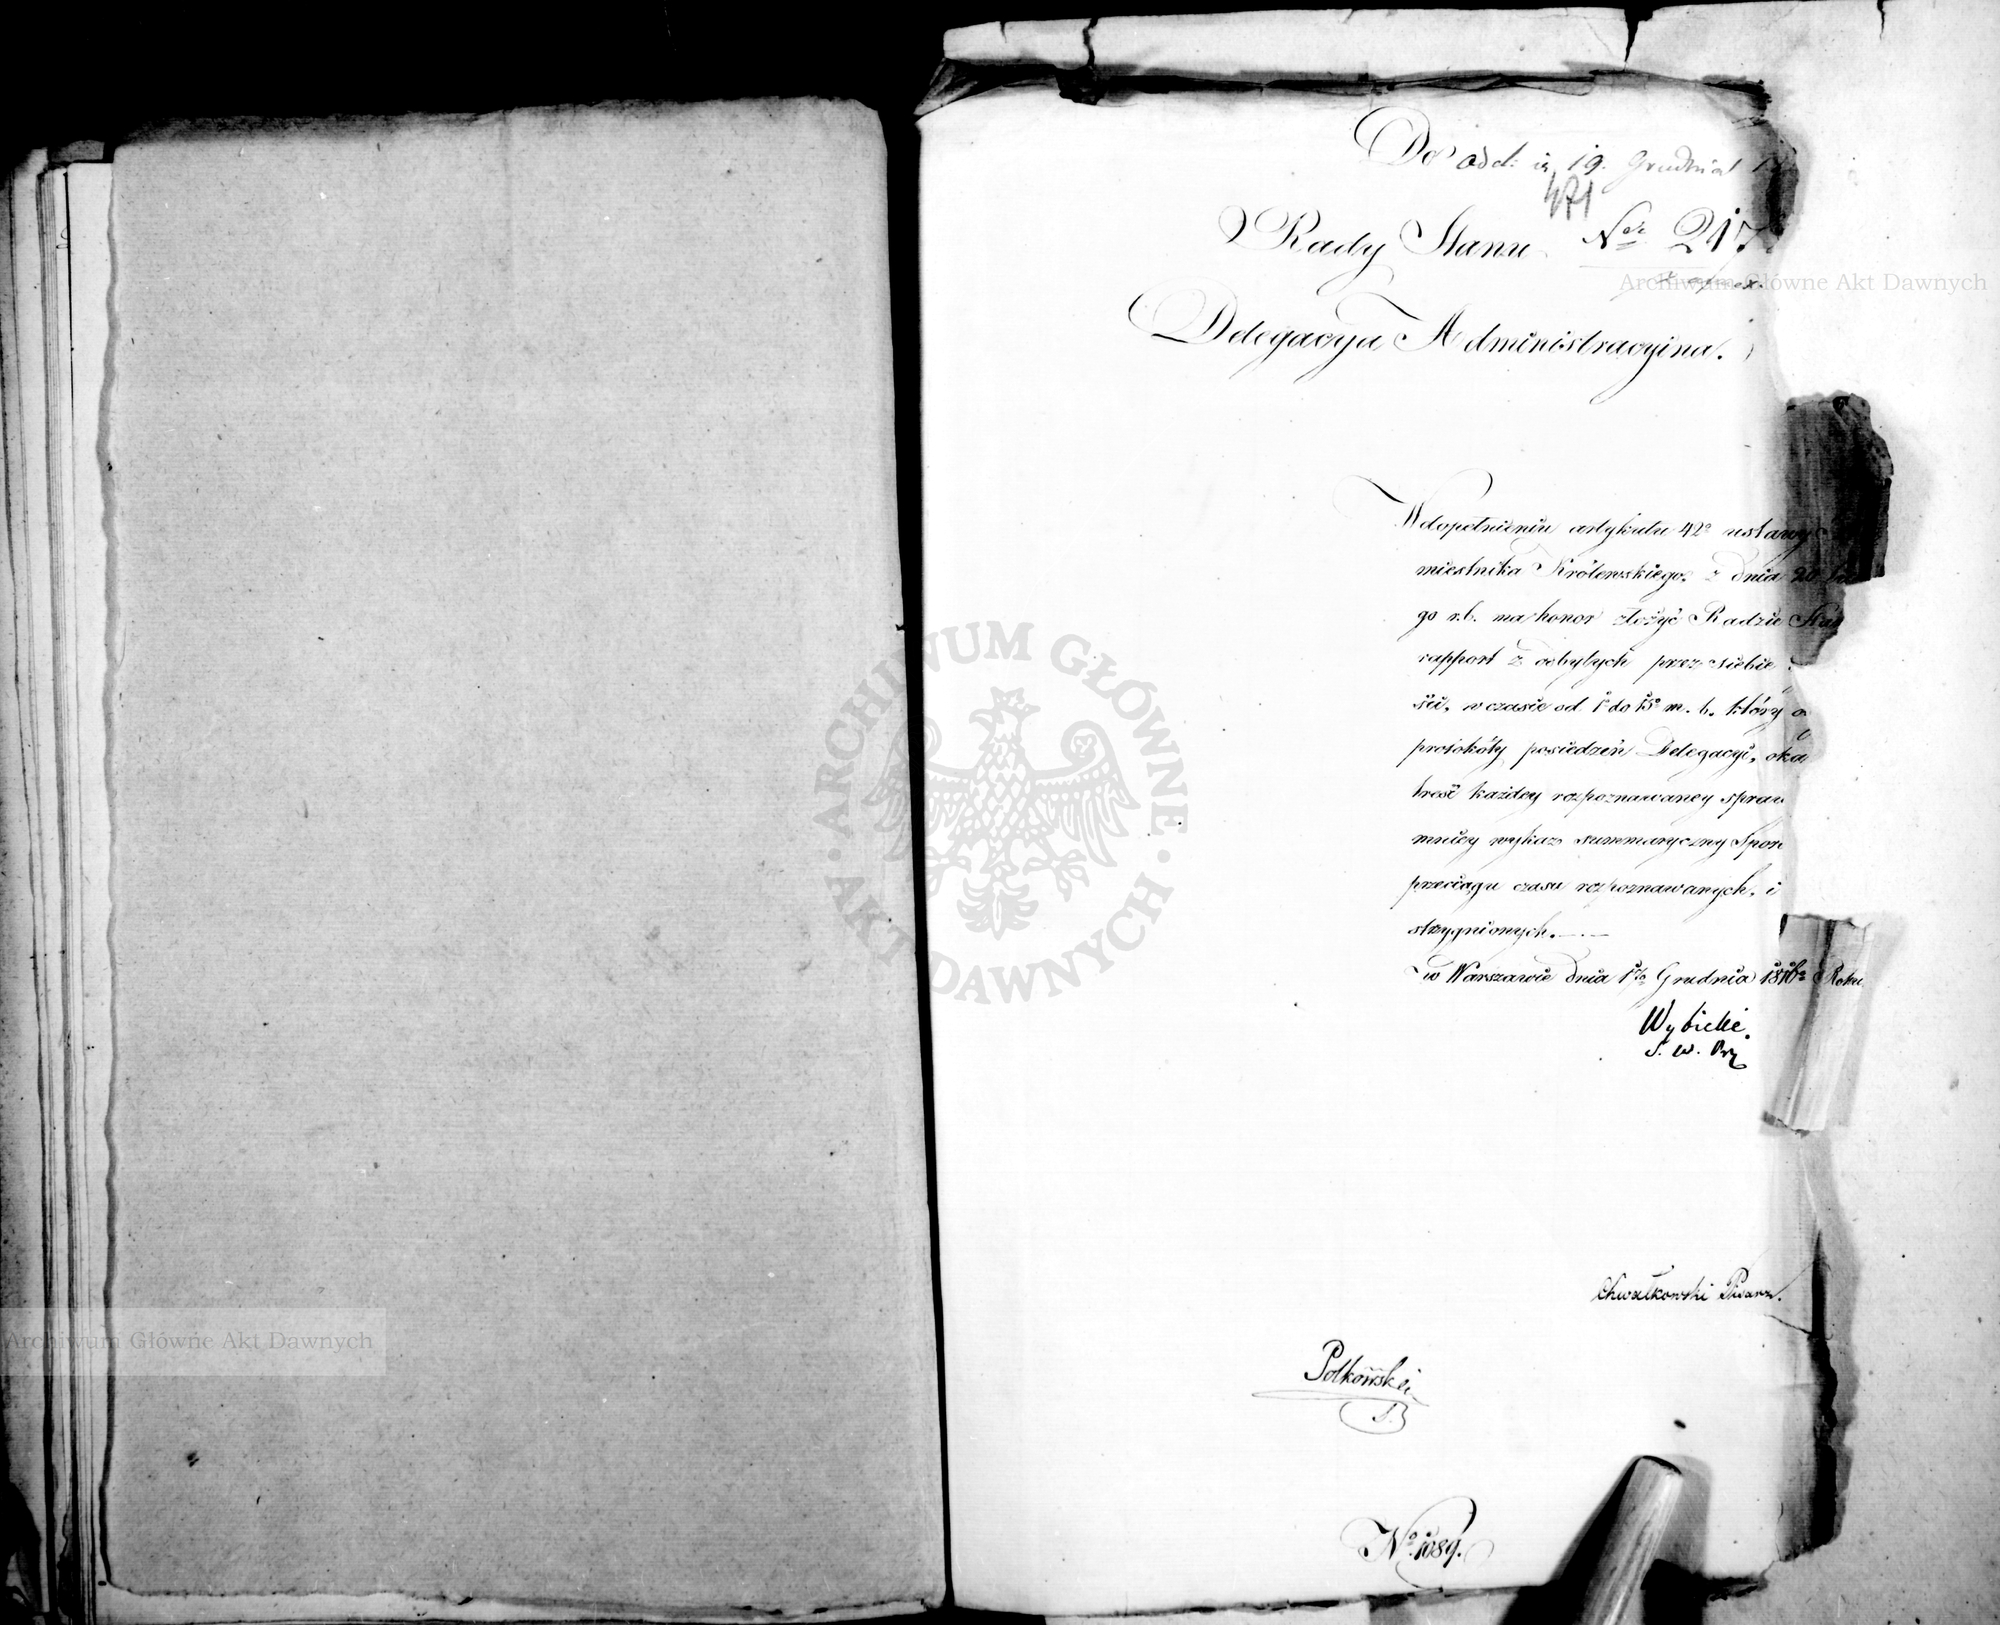 Do
odd: 19. Grudnia
471
Rady Stanu No 217.
Delegacya Administracyina.
W dopełnieniu artykułu 42o ustawy
miestnika Królewskiego z dnia 20
go r.b. ma honor złożyć Radzie Stan
rapport z odbytych przez siebie
siu, w czasie od 1o do 15o m. b. który
protokóły posiedzeń Delegacyi, oka
treść każdey rozpoznawaney spraw
mniey wykaz summaryczny Spor
przeciągu czasu rozpoznawanych, i
strzygnionych.
w Warszawie dnia Grudnia 1816o Roku
Wybicki
S. W. Prz
Chwałkowski Pisarz.
Polkowski
No. 1089.
Archiwum Główne Akt Dawnych
Archiwum Główne Akt Dawnych
ARCHIWUM GŁÓWNE AKT DAWNYCH